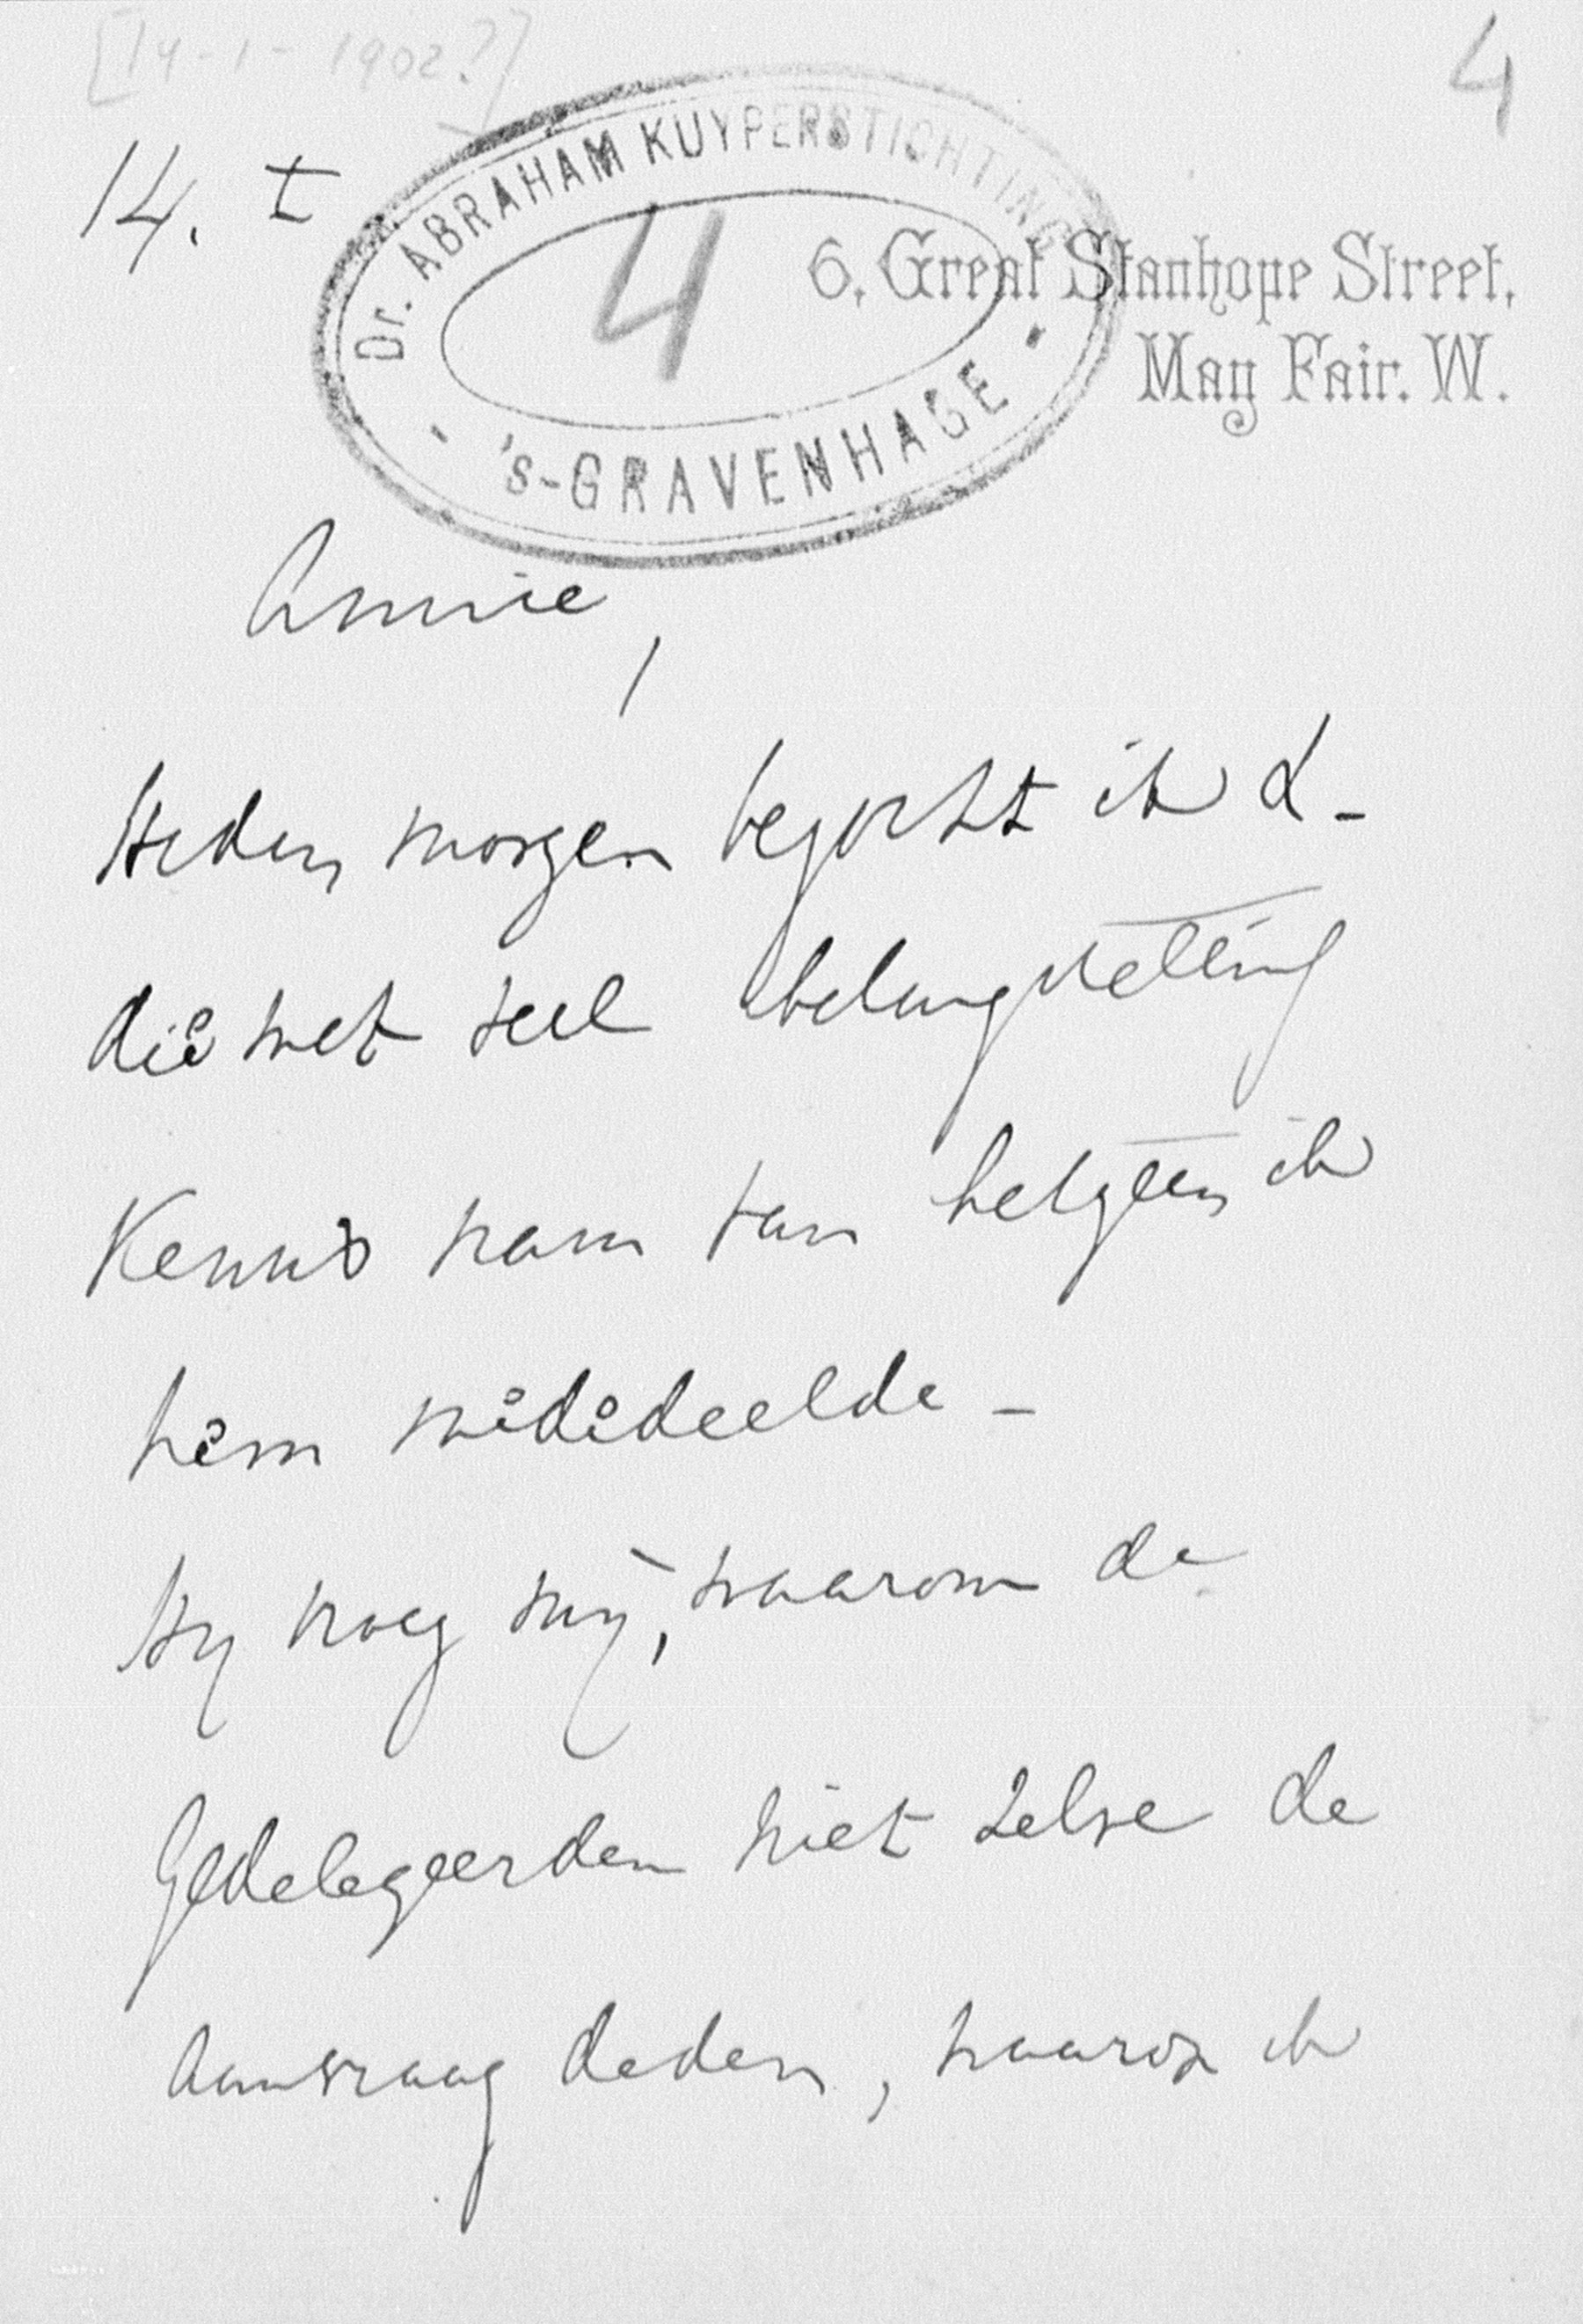 [14-1-1902?]
4
14. I
Dr. ABRAHAM KUYPERSTICHTING
4
's-GRAVENHAGE
6, Great Stanhope Street,
May Fair. W.
Amice,
Heden morgen bezocht ik L-
die met veel belangstelling
Kennis nam van hetgeen ik
hem mededeelde -
Hij vroeg mij, waarom de
Gedelegeerden niet zelve de
aanvraag deden, waarop ik